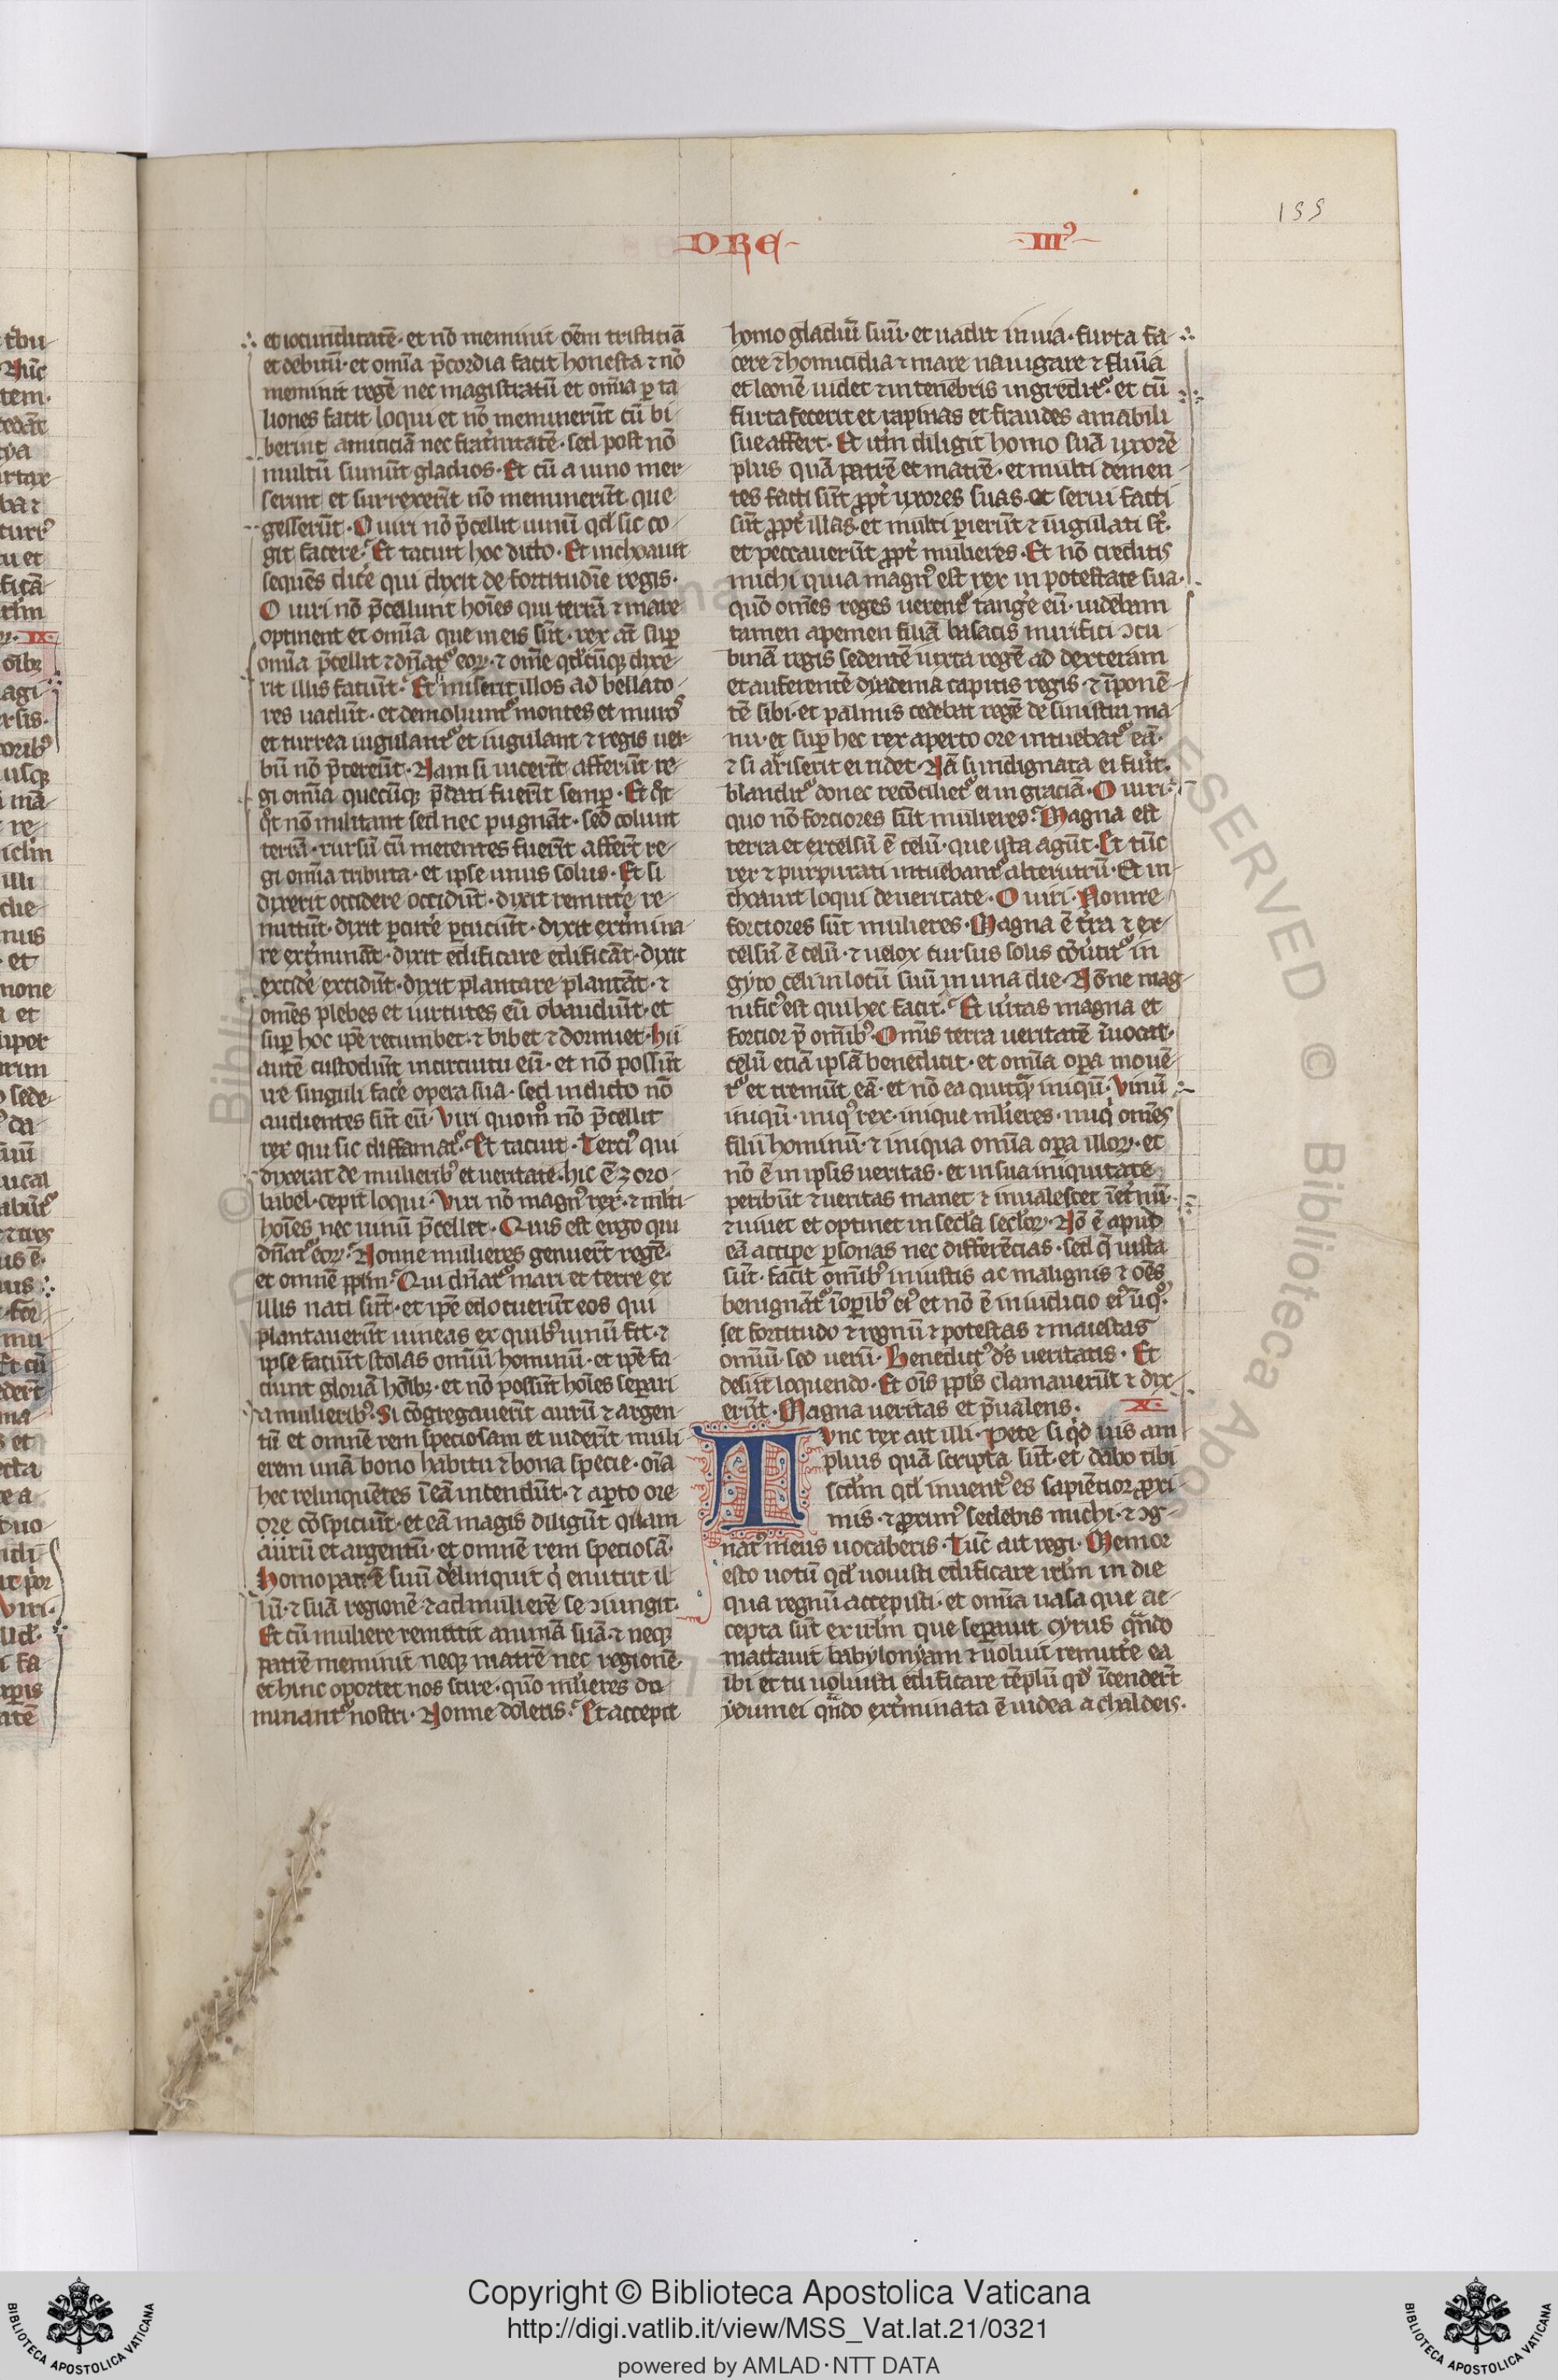 DRE
IIIꝰ
155
et iocunditatē· et nō meminit oēm tristitiā
et debitū· et om̄ia p̄cordia facit honesta ⁊ nō
meminit regē nec magistratū et om̄ia ꝑ ta-
liones facit loqui et nō meminerūt cū bi-
berint amiciciā nec frat̄nitatē· sed post nō
multū sumūt gladios· Et cū a uino mer-
serint et surrexerīt nō meminerīt que
gesserūt· O uiri nō p̄cellit uinū qd̄ sic co-
git facere? Et tacuit hoc dicto· Et inchoauit
sequēs dice͛ qui dixit de fortitudīe regis·
O uiri nō p̄cellunt hoīes qui terrā ⁊ mare
optinent et om̄ia que in eis sūt· rex at̄ suꝑ
om̄ia p̄cellit ⁊ dn̄atᷣ eoꝝ· ⁊ om̄e qd̄cūqꝫ dixe-
rit illis faciūt· Et si miserit illos ad bellato-
res uadūt· et demoliuntᷣ montes et muros
et turres iugulantᷣ et iugulant ⁊ regis uer-
bū nō p̄tereūt· Nam si uicerīt afferūt re-
gi om̄ia quecūqꝫ p̄dati fuerīt semꝑ· Et qͦt-
qͦt nō militant sed nec pugnāt· sed colunt
terrā· rursū cū metentes fuerīt affert̄ re-
gi om̄ia tributa· et ipse unus solus· Et si
dixerit occidere occidūt· dixit remitte͛ re-
mittūt· dixit ꝑcute͛ ꝑcuciūt· dixit ext̉mina-
re ext̉mināt· dixit edificare edificāt· dixit
excide͛ excidūt· dixit plantare plantāt· ⁊
omēs plebes et uirtutes eū obaudiūt· et
suꝑ hoc ipē recumbet· ⁊ bibet ⁊ dormiet· hii
autē custodiūt in circuitu eū· et nō possūt
ire singuli face͛ opera sua· sed in dicto nō
audientes sūt eū· Viri quomͦ nō p̄cellit
rex qui sic diffamatᷣ? Et tacuit· Terciꝰ qui
dixerat de mulieribꝰ et ueritate· hic ē zoro-
babel· cepit loqui· Viri nō magnꝰ rex· ⁊ mlti
hoīes nec uinū p̄cellit· Quis est ergo qui
dn̄atᷣ eoꝝ? Nonne mulieres genuerīt regē·
et omnē pp̄lm? Qui dn̄atᷣ mari et terre ex
illis nati sūt· et ipē edocuerūt eos qui
plantauerūt uineas ex quibꝰ uinū fit· ⁊
ipse faciūt stolas omniū hominū· et ipē fa-
ciunt gloriā hoībꝫ· et nō possūt hoīes seꝑari
a mulieribꝰ· Si cōgregauerīt aurū ⁊ argen-
tū et omnē rem speciosam et uiderīt muli-
erem unā bono habitu ⁊ bona specie· oīa
hec relinquētes ī eā intendūt· ⁊ aꝑto ore
ore cōspiciūt· et eā magis diligūt quam
aurū et argentū· et omnē rem speciosā·
Homo patrē suū delinquit qͥ enutrit il-
lū· ⁊ suā regionē· ⁊ ad mulierē se ꝯiungit·
Et cū muliere remittit animā suā· ⁊ neqꝫ
patrē meminit neqꝫ matrē nec regionē·
et hinc oportet nos scire· quō mlieres do-
minantᷣ nostri· Nonne doletis? Et accepit
homo gladiū suū· et uadit in uia· furta fa-
cere ⁊ homicidia ⁊ mare nauigare ⁊ flum̄a
et leonē uidet ⁊ in tenebris ingreditᷣ· et cū
furta fecerit et rapinas et fraudes amabili
sue affert· Et itm̄ diligit homo suā uxorē
plus quā patrē et matrē· et multi demen-
tes facti sūt ꝓpt̉ uxores suas· et serui facti
sūt ꝓpt̉ illas· et multi ꝑierūt ⁊ iugulati st̄·
et peccauerūt ꝓpt̉ mulieres· Et nō creditis
michi quia magnꝰ est rex in potestate sua·
quō omēs reges uerentᷣ tange͛ eū· uidebam
tamen apemen filiā basacis mirifici ꝯcu-
binā regis sedentē iuxta regē ad dexteram
et auferentē dyadema capitis regis· ⁊ īponē-
tē sibi· et palmis cedebat regē de sinistra ma-
nu· et suꝑ hec rex aperto ore intuebatᷣ eā·
⁊ si arriserit ei ridet· Nā si indignata ei fuit̉·
blanditᷣ donec recōcilietᷣ ei in graciā· O uiri·
quo nō forciores sūt mulieres? Magna est
terra et excelsū ē celū· que ista agūt· Et tūc
rex ⁊ purpurati intuebantᷣ alterutrū· Et in-
choauit loqui de ueritate· O uiri· Nonne
forciores sūt mulieres· Magna ē t̉ra ⁊ ex-
celsū ē celū· ⁊ uelox cursus solis cōu̓titᷣ in
gyro celi in locū suū in una die· Nōne mag-
nificꝰ est qui hec facit? Et u̓itas magna et
forcior p̄ om̄ibꝰ· Omnis terra ueritatē īuocat·
celū etiā ipsā benedicit· et om̄ia oꝑa mouē-
tᷣ et tremūt eā· et nō ē ea quicqͣ iniqū· Vinū
iniqū· iniqꝰ rex· inique mlieres· iniqͥ omēs
filii hominū· ⁊ iniqua om̄ia oꝑa illoꝝ· et
nō ē in ipsis ueritas· et in sua iniquitate
peribūt ⁊ ueritas manet ⁊ inualescet īet̉nū·
⁊ uiuet et optinet in secl̄a secl̄oꝝ· Nō ē apud
eā accipe͛ ꝑsonas nec differēcias· sed q̄ iusta
sūt· facit om̄ibꝰ iniustis ac malignis ⁊ oēs
benignātᷣ ī oꝑibꝰ eiꝰ et nō ē in iudicio eiꝰ īiqͦ·
set fortitudo ⁊ regnū ⁊ potestas ⁊ maiestas
omniū· seo uerū· Benedictꝰ ds̄ ueritatis· Et
desiit loquendo· Et oīs pp̄ls clamauerūt ⁊ dix-
erūt· Magna ueritas et p̄ualens·
X·
Tvnc rex ait illi· Pete si qͥd uis am-
plius quā scripta sūt· et dabo tibi
scd̄m qd̄ inuentꝰ es sapiētior ꝓxi-
mis· ⁊ ꝓximꝰ sedebis michi· ⁊ ꝯg-
natꝰ meus uocaberis· Tūc ait regi· Memor
esto uotū qd̄ uouisti edificare irl̄m in die
qua regnū accepisti· et om̄ia uasa que ac-
cepta sūt ex irl̄m que seꝑauit cyrus qn̄do
mactauit babylonyam ⁊ uoluit remitte͛ ea
ibi et tu uoluisti edificare tēplū qd̄ īcenderīt
ydumei qn̄do ext̉minata ē iudea a chaldeis·
Copyright © Biblioteca Apostolica Vaticana
http://digi.vatlib.it/view/MSS_Vat.lat.21/0321
powered by AMLAD·NTT DATA
BIBLIOTECA APOSTOLICA VATICANA
BIBLIOTECA APOSTOLICA VATICANA